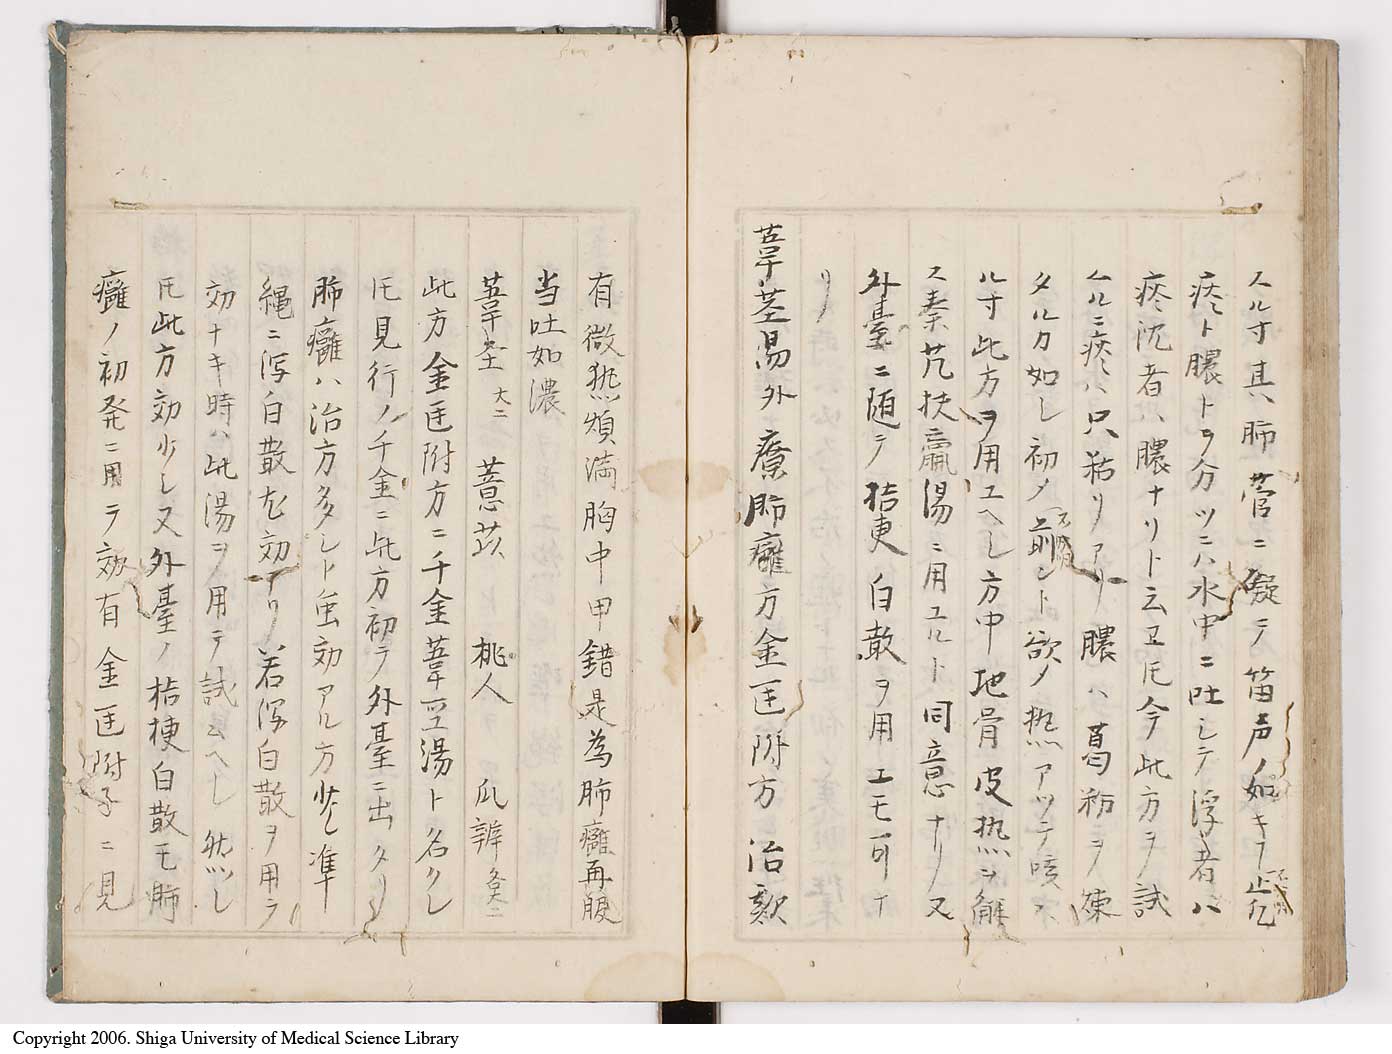 スル寸其ハ肺管ニ礙テ笛声ノ如キヲ止ル
痰ト膿トヲ分ツニハ水中ニ吐シテ浮者ハ
痰沈者ハ膿ナリト云𪜈今此方ヲ試
ムルニ痰ハ只粘リアリ膿ハ葛粉ヲ煉
タルカ如シ初メ前ント欲ノ熱アツテ咳
ル寸此方ヲ用エヘシ方中地骨皮熱ヲ解
ス秦艽扶羸湯ニ用エルト同意ナリ又
外臺ニ随テ桔更白散ヲ用エモ可ナ
リ
葦茎湯外療肺癰方金匡附方治欬
有微熱煩満胸中甲錯是為肺癰再服
当吐如濃
葦茎 大二 薏苡 桃人 瓜辨 各大二
此方金匡附方ニ千金葦茎湯ト名クレ
𪜈見行ノ千金ニ此方初テ外臺ニ出タリ
肺癰ハ治方多シト虽効アル方少シ準
縄ニ泻白散尤効アリ若泻白散ヲ用テ
効ナキ時ハ此湯ヲ用テ試ムヘシ然シ
𪜈此方効少シ又外臺ノ桔梗白散モ肺
癰ノ初発ニ用テ効有金匡附子ニ見
Copyright 2006. Shiga University of Medical Science Library